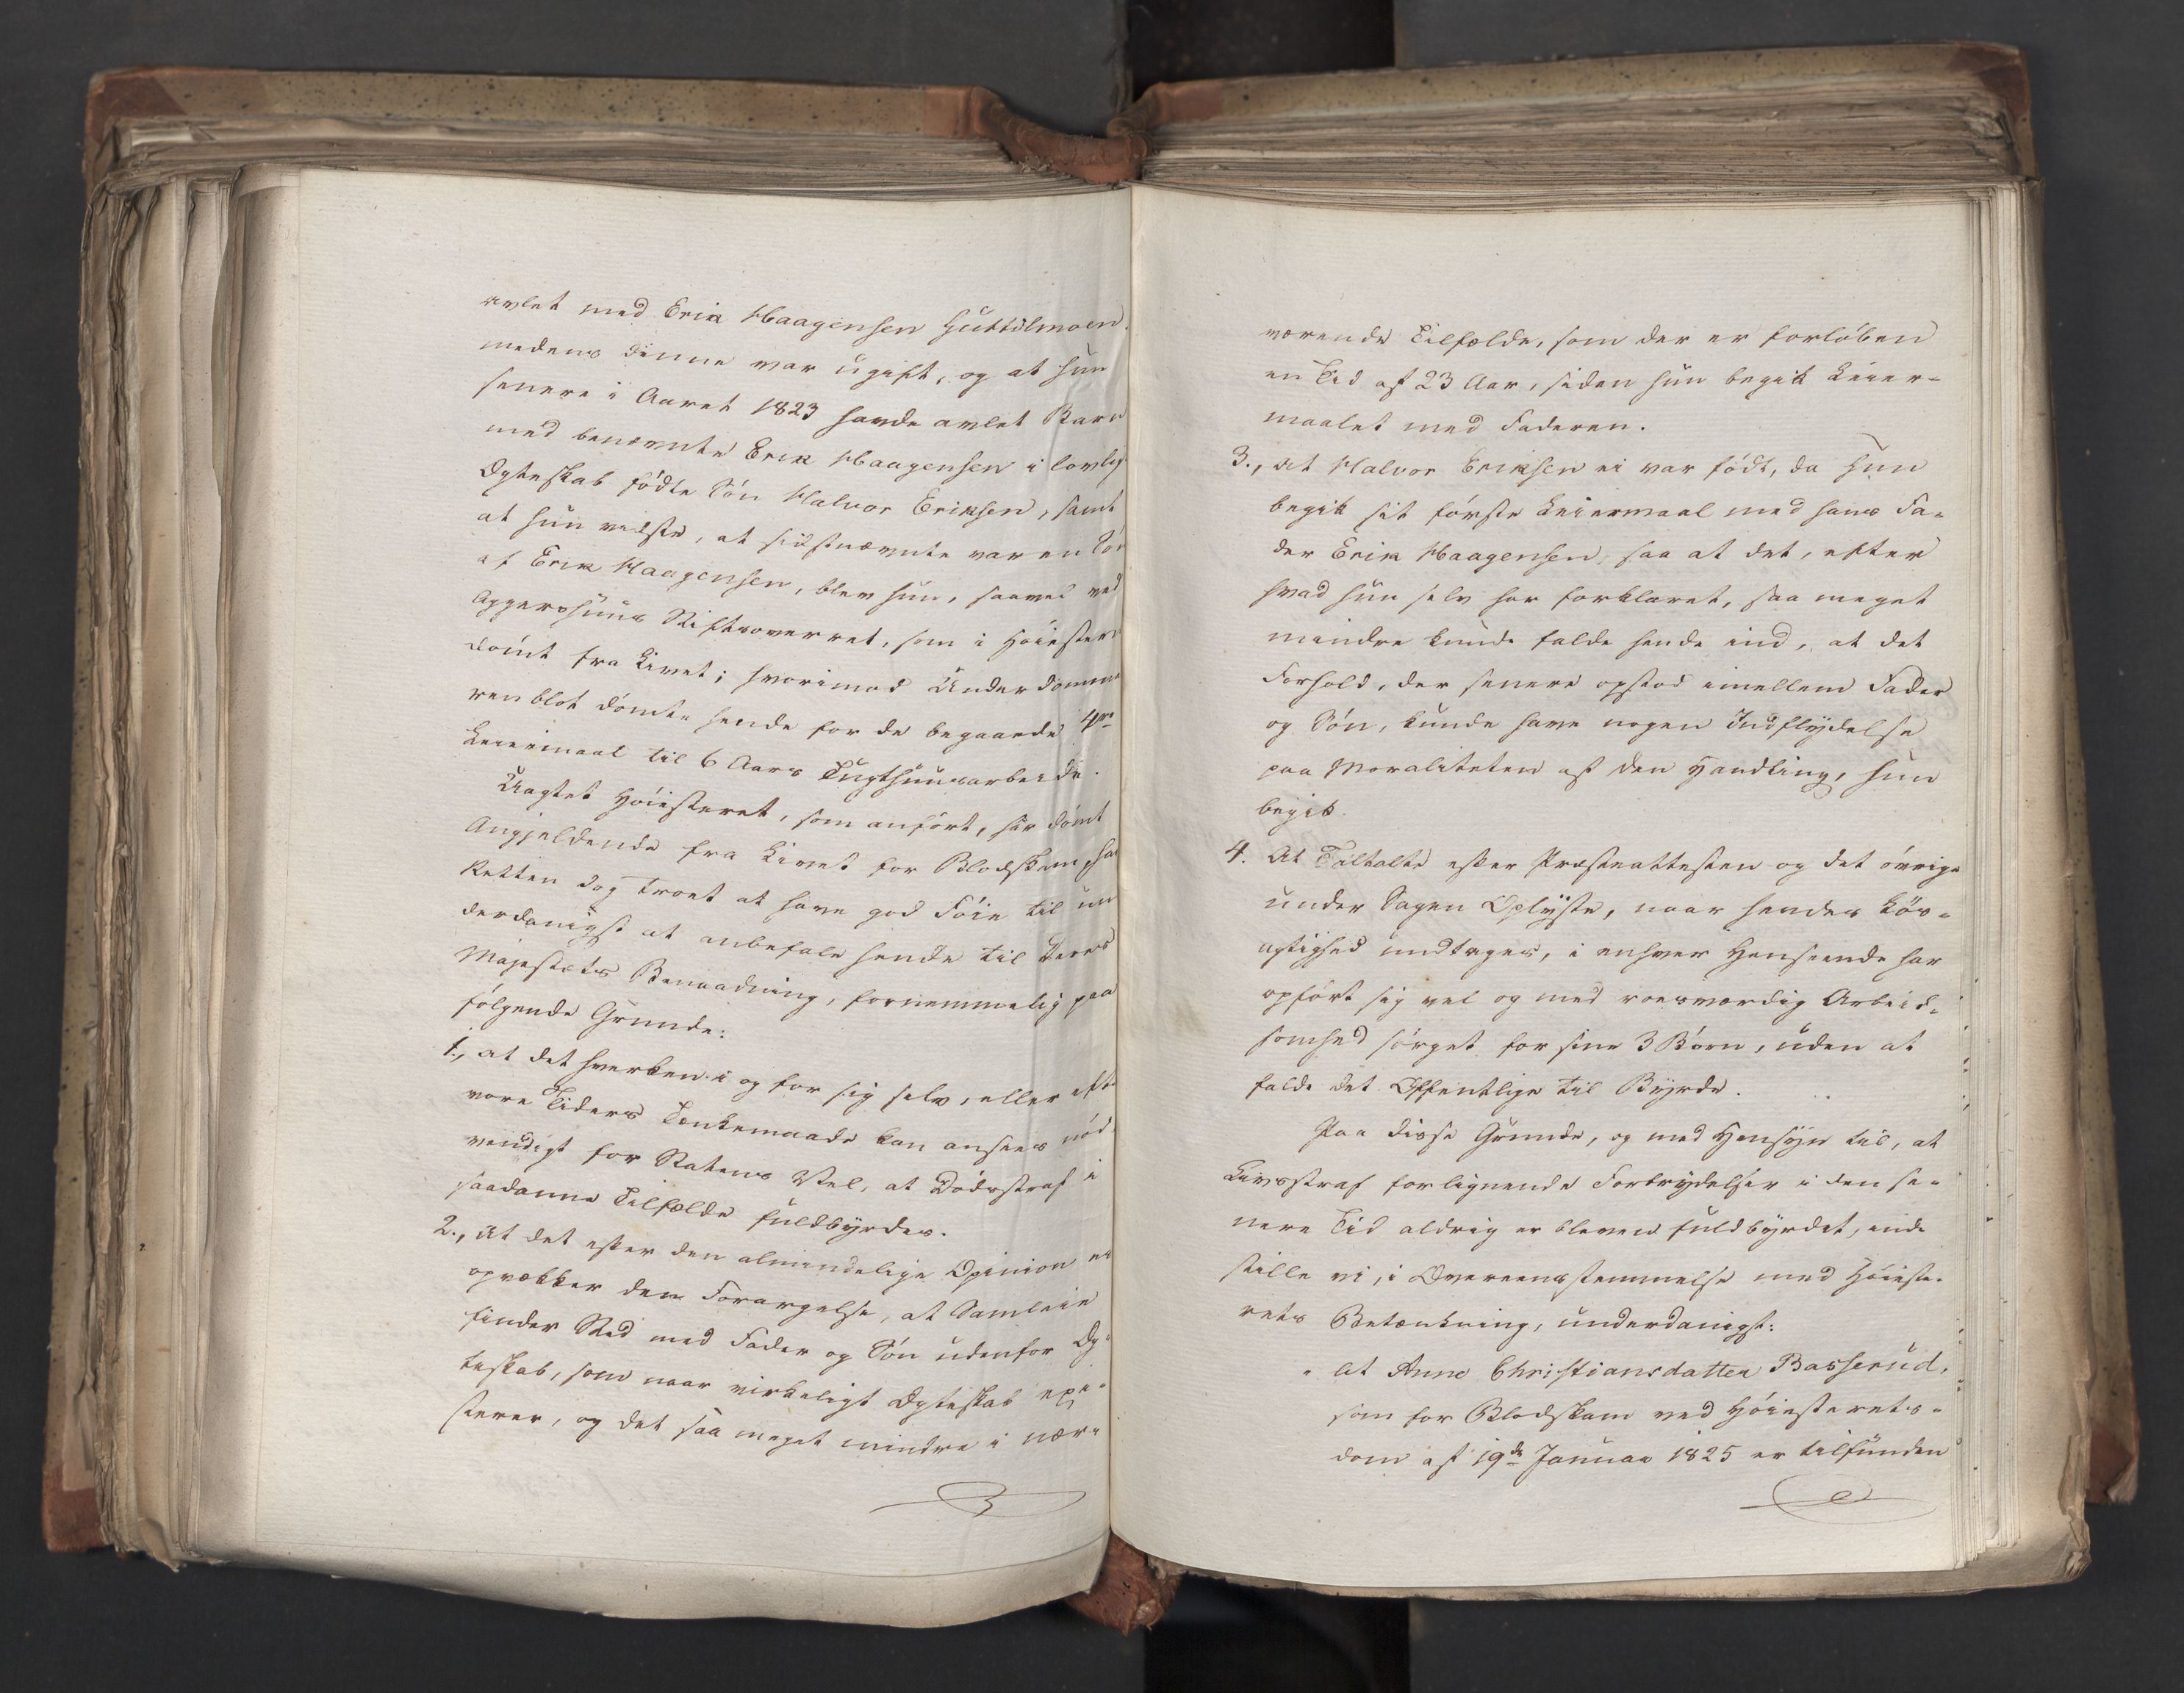 avlet med Erik Haagensen Huttulmoen
medens denne var ugift, og at hun
senere i Aaret 1823 havde avlet Barn
med benævnte Erik Haagensen i lovlig
Ægteskab födte Sön Halvor Eriksen, samt
at hun vidste, at sidstnævnte var en Sön
af Erik Haagensen, blev hun, saavel ved
Aggershuus Stiftsoverret, som i Höiesteret
dömt fra Livet; hvorimod Underdomme
ren blot dömte hende for de begaaede 4re
Leiermaal til 6 Aars Tugthuusarbeide.
Uagtet Höiesteret, som anfört, har dömt
Angjeldende fra Livet for Blodskam, har
Retten dog troet at have god Föie til un
derdanigst at anbefale hende til Deres
Majestæts Benaadning, fornemmelig paa
fölgende Grunde:
1., at det hverken i og for sig selv, eller efter
vore Tiders Tænkemaade kan ansees nöd-
vendigt for Statens Vel, at Dödsstraf i
saadanne Tilfælde fuldbyrdes.
2., at det efter den almindelige Opinion ei
opvækker den Forargelse, at Samleie
finder Sted med Fader og Sön udenfor Æg-
teskab, som naar virkeligt Ægteskab exi-
sterer, og det saa meget mindre i nær-
værende Tilfælde, som der er forlöben
en Tid af 23 Aar, siden hun begik Leier-
maalet med Faderen.
3., at Halvor Eriksen ei var födt, da hun
begik sit förste Leiermaal med hans Fa-
der Erik Haagensen, saa at det, efter
hvad hun selv har forklaret, saa meget
mindre kunde falde hende ind, at det
Forhold, der senere opstod imellem Fader
og Sön, kunde have nogen Indflydelse
paa Moraliteten af den Handling, hun
begik.
4. At Tiltalte efter Præsteattesten og det övrige
under Sagen Oplyste, naar hendes Lös-
agtighed undtages, i enhver Henseende har
opfört sig vel og med roesværdig Arbeid-
somhed sörget for sine 3 Börn, uden at
falde det Offentlige til Byrde.
Paa disse Grunde, og med Hensyn til, at
Livsstraf for lignende Forbrydelser i den se-
nere Tid aldrig er bleven fuldbyrdet, ind-
stille vi, i Overeensstemmelse med Höieste-
rets Betænkning, underdanigst:
" at Anne Christiansdatter Basserud,
som for Blodskam ved Höiesterets-
dom af 19de Januar 1825 er tilfunden